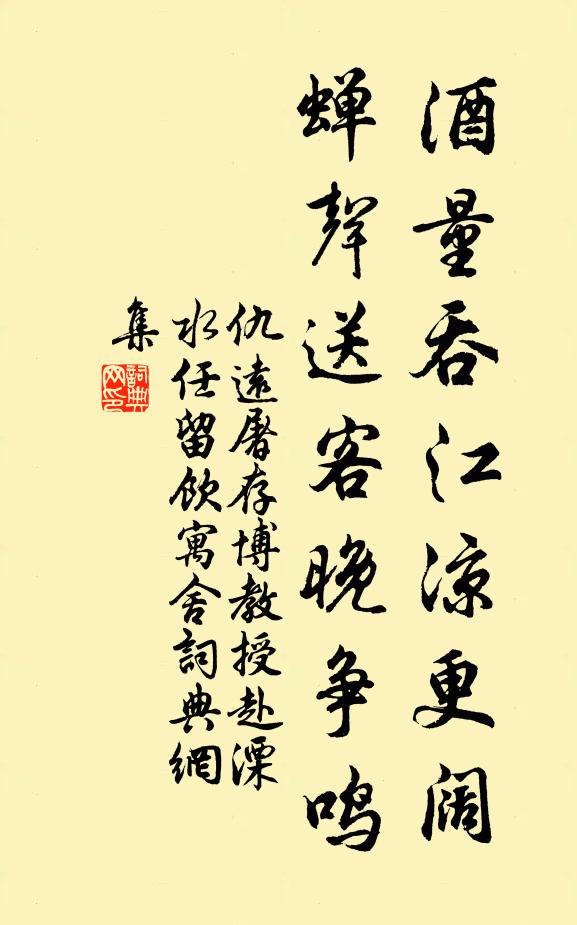 酒量吞江凉更阔
蝉聲送客晚争鸣
仇遠屠存博教授赴溧
水任留飲寓舍詞典網
集
詞典
网印